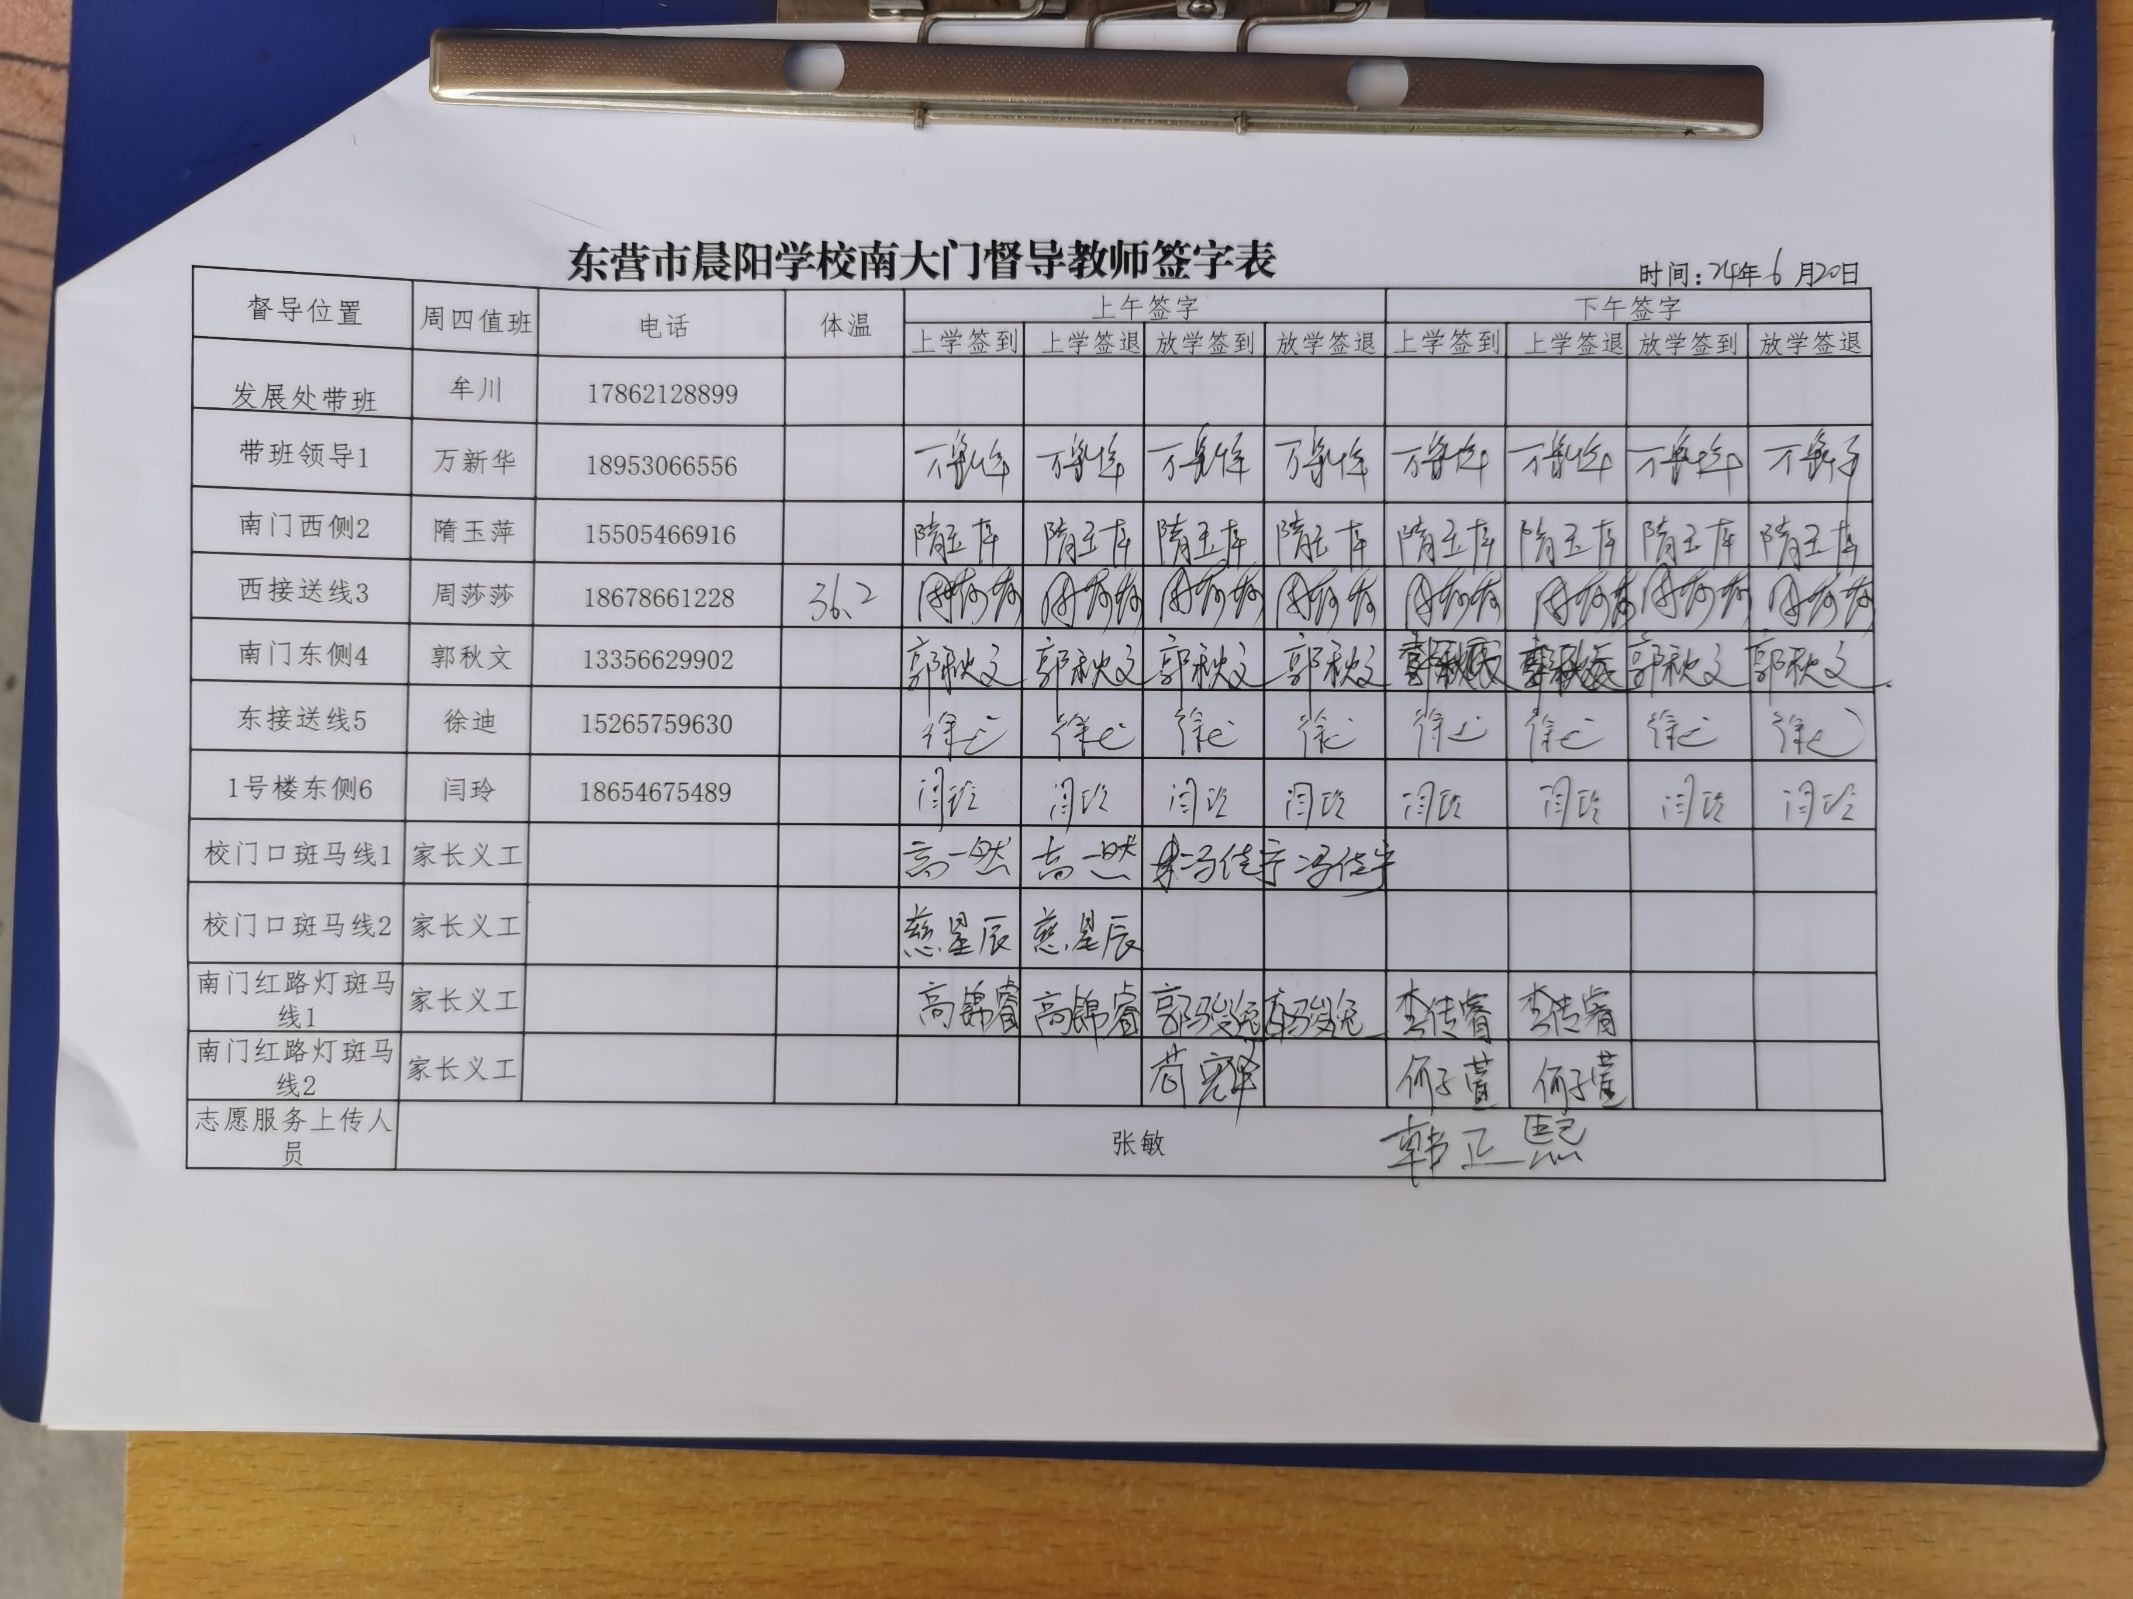 东营市晨阳学校南大门督导教师签字表
时间：24年6月20日
督导位置 周四值班 电话 体温 上午签字 下午签字
上学签到 上学签退 放学签到 放学签退 上学签到 上学签退 放学签到 放学签退
发展处带班 牟川 17862128899
带班领导1 万新华 18953066556 万新华 万新华 万新华 万新华 万新华 万新华 万新华 万新华
南门西侧2 隋玉萍 15505466916 隋玉萍 隋玉萍 隋玉萍 隋玉萍 隋玉萍 隋玉萍 隋玉萍 隋玉萍
西接送线3 周莎莎 18678661228 36.2 周莎莎 周莎莎 周莎莎 周莎莎 周莎莎 周莎莎 周莎莎 周莎莎
南门东侧4 郭秋文 13356629902 郭秋文 郭秋文 郭秋文 郭秋文 郭秋文 郭秋文 郭秋文 郭秋文
东接送线5 徐迪 15265759630 徐迪 徐迪 徐迪 徐迪 徐迪 徐迪 徐迪 徐迪
1号楼东侧6 闫玲 18654675489 闫玲 闫玲 闫玲 闫玲 闫玲 闫玲 闫玲 闫玲
校门口斑马线1 家长义工 高一然 高一然 冯佳宇 冯佳宇
校门口斑马线2 家长义工 慈星辰 慈星辰
南门红路灯斑马
线1 家长义工 高锦睿 高锦睿 李传睿 李传睿
南门红路灯斑马
线2 家长义工 何子萱 何子萱
志愿服务上传人
员 张敏 韩正熙